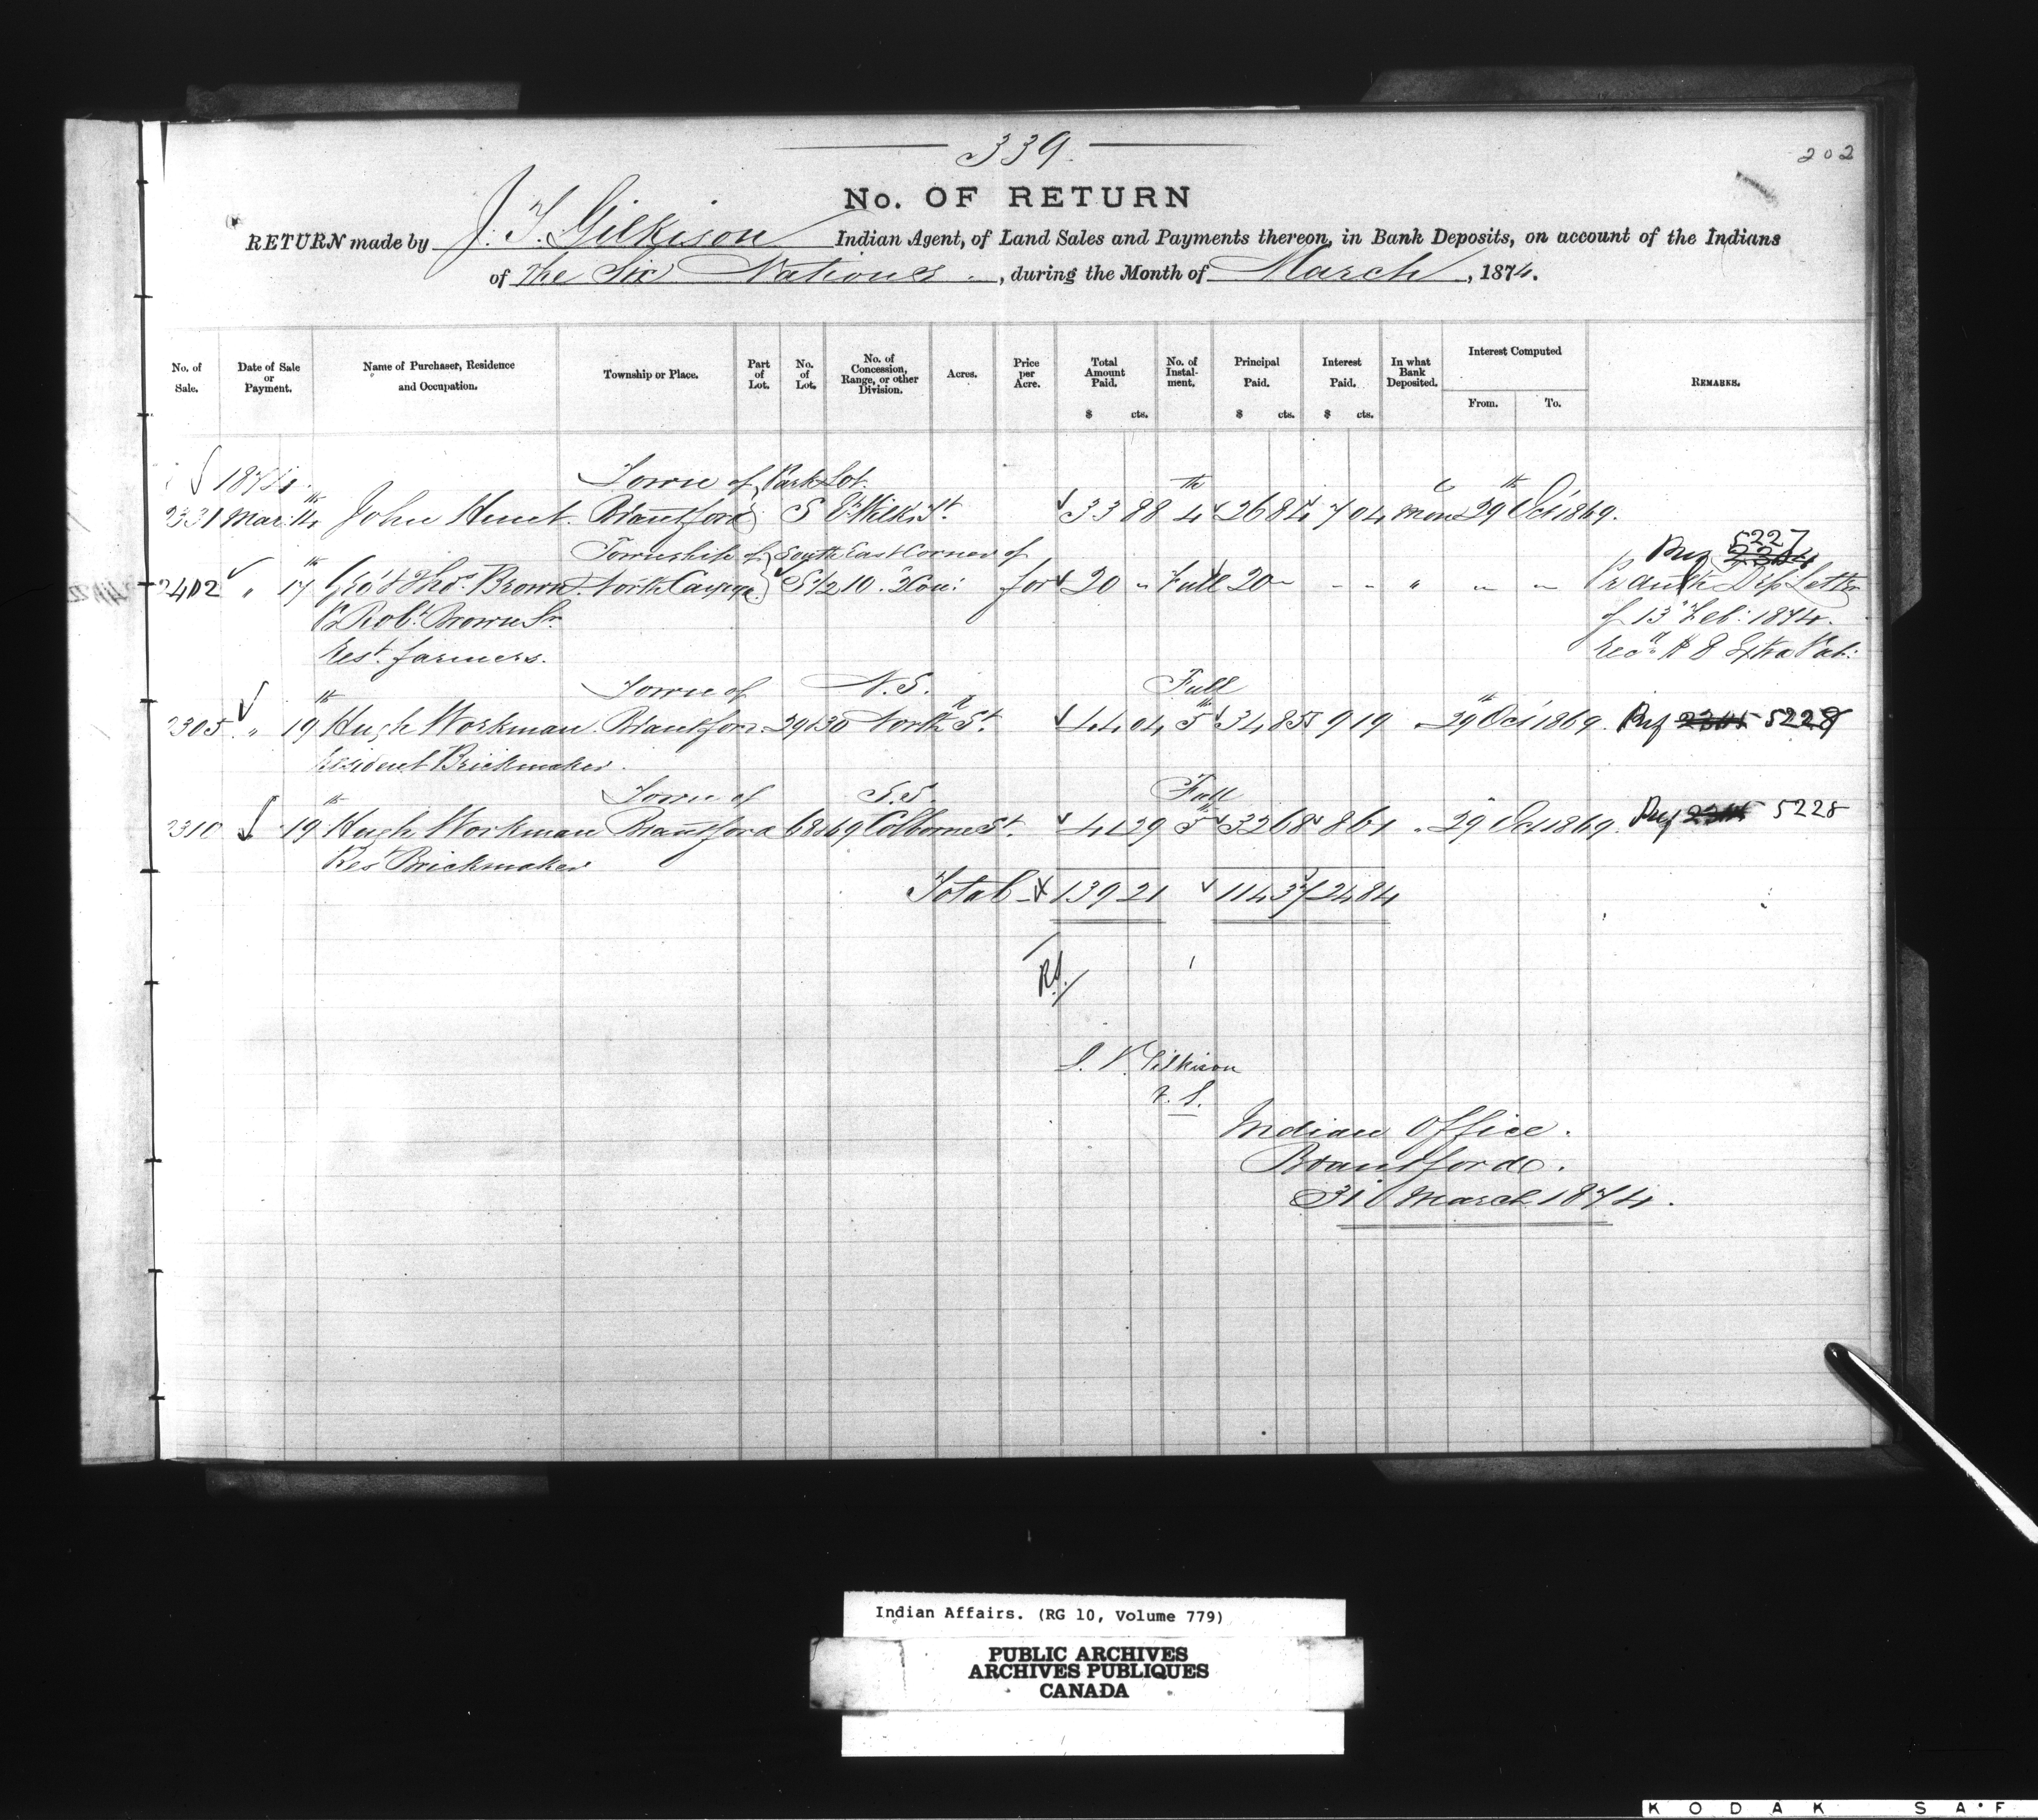 339.
202
No. OF RETURN
RETURN made by J. T. Gilkison Indian Agent, of Land Sales and Payments thereon, in Bank Deposits, on account of the Indians
of the Six Nations, during the Month of March, 1874.
No. of Sale. Date of Sale or Payment. Name of Purchaser, Residence and Occupation. Township or Place. Part of Lot. No. of Lot. No. of Concession, Range, or other Division. Acres. Price per Acre. Total Amount Paid. $ cts. No. of Instalment. Principal Paid. $ cts. Interest Paid. $ cts. In what Bank Deposited. Interest Computed From. To. REMARKS.
1874. Town of Park Lot.
2331 Mar. 14th John Hunt. Brantford S Wilks St. 33 88 4th 26 84 7 04 Mon 29th Oct 1869.
Township of South East Corner of 5227
2402 " 17th Geo & Thos. Brown North Cayuga S 1/2 10. 2 Con: for 20 " Full 20 - - - " " " Pr auth Dep Letter
Robt. Brown Sr. of 13 Feb: 1874.
Rest. farmers. Recd. $8 Extra Pat:
Town of N.S. Full
2305 " 19th Hugh Workman Brantford 29&30 North St. 44 04 5th 34 85 9 19 " 29th Oct 1869. 5229
Resident Brickmaker.
Town of S.S. Full
2310 19th Hugh Workman Brantford 68&69 Colborne St. 41 29 5th 32 68 8 61 " 29 Oct 1869. 5228
Res Brickmaker
Total 139 21 114 37 24 84
J. T. Gilkison
V. S.
Indian Office.
Brantford.
31 March 1874.
Indian Affairs. (RG 10, Volume 779)
PUBLIC ARCHIVES
ARCHIVES PUBLIQUES
CANADA
KODAK SAF